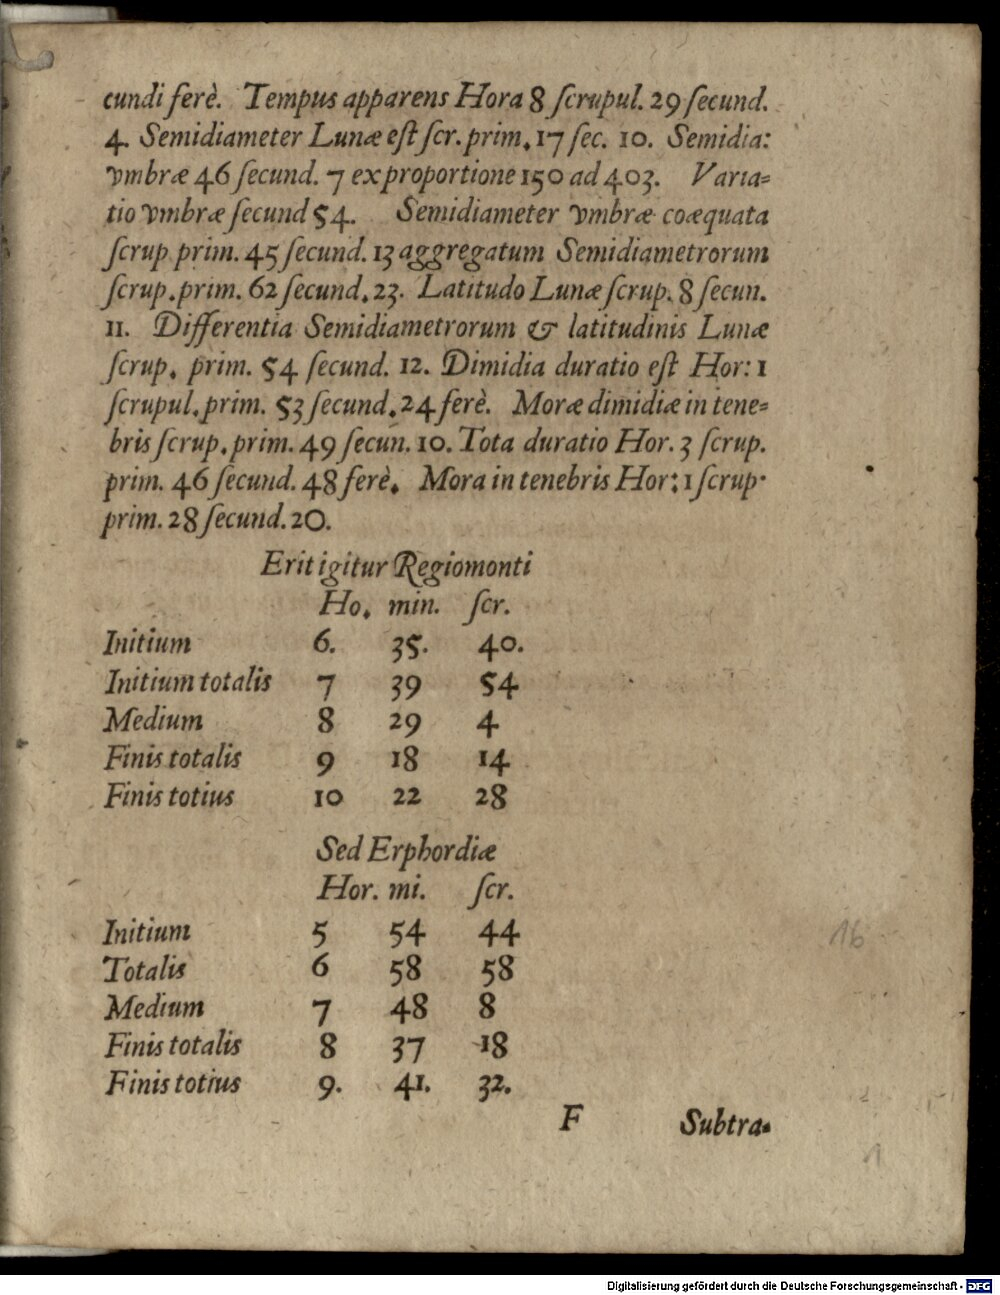 cundi ferè. Tempus apparens Hora 8 ſcrupul. 29 ſecund.
4. Semidiameter Lunæ eſt ſcr. prim. 17 ſec. 10. Semidia:
vmbræ 46 ſecund. 7 ex proportione 150 ad 403. Varia-
tio vmbræ ſecund 54. Semidiameter vmbræ coæquata
ſcrup prim. 45 ſecund. 13 aggregatum Semidiametrorum
ſcrup. prim. 62 ſecund. 23. Latitudo Lunæ ſcrup. 8 ſecun.
11. Differentia Semidiametrorum & latitudinis Lunæ
ſcrup. prim. 54 ſecund. 12. Dimidia duratio eſt Hor: 1
ſcrupul. prim. 53 ſecund. 24 ferè. Moræ dimidiæ in tene-
bris ſcrup. prim. 49 ſecun. 10. Tota duratio Hor. 3 ſcrup.
prim. 46 ſecund. 48 ferè. Mora in tenebris Hor: 1 ſcrup.
prim. 28 ſecund. 20.
Erit igitur Regiomonti
Ho. min. ſcr.
Initium 6. 35. 40.
Initium totalis 7 39 54
Medium 8 29 4
Finis totalis 9 18 14
Finis totius 10 22 28
Sed Erphordiæ
Hor. mi. ſcr.
Initium 5 54 44
Totalis 6 58 58
Medium 7 48 8
Finis totalis 8 37 18
Finis totius 9. 41. 32.
F Subtra-
16
1
Digitalisierung gefördert durch die Deutsche Forschungsgemeinschaft - DFG